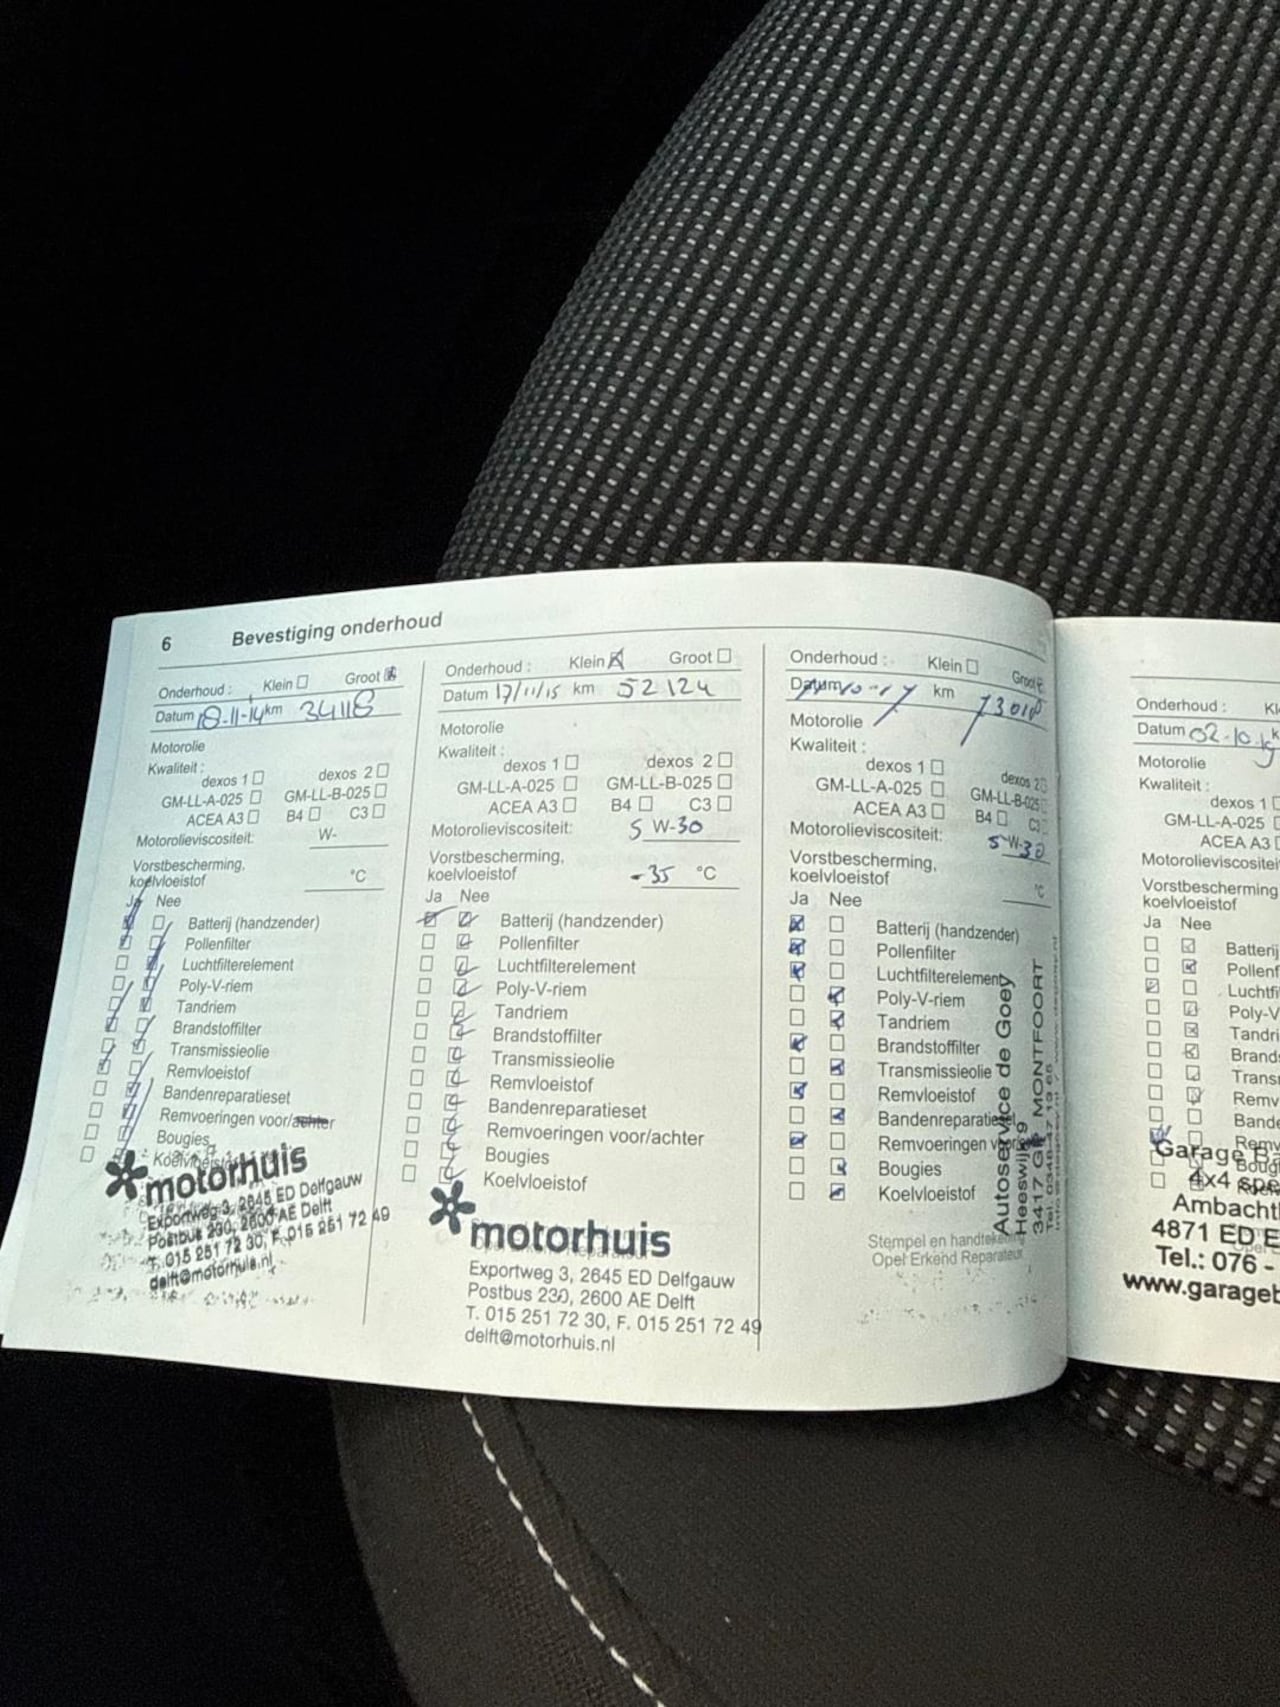 6 Bevestiging onderhoud
Onderhoud : Klein Groot
Datum 18-11-14 km 34118
Motorolie
Kwaliteit :
dexos 1 dexos 2
GM-LL-A-025 GM-LL-B-025
ACEA A3 B4 C3
Motorolieviscositeit: W-
Vorstbescherming,
koelvloeistof °C
Ja Nee
Batterij (handzender)
Pollenfilter
Luchtfilterelement
Poly-V-riem
Tandriem
Brandstoffilter
Transmissieolie
Remvloeistof
Bandenreparatieset
Remvoeringen voor/achter
Bougies
Koelvloeistof
motorhuis
Exportweg 3, 2645 ED Delfgauw
Postbus 230, 2600 AE Delft
T. 015 251 72 30, F. 015 251 72 49
delft@motorhuis.nl
Onderhoud : Klein Groot
Datum 17/11/15 km 52124
Motorolie
Kwaliteit :
dexos 1 dexos 2
GM-LL-A-025 GM-LL-B-025
ACEA A3 B4 C3
Motorolieviscositeit: 5 W-30
Vorstbescherming,
koelvloeistof -35 °C
Ja Nee
Batterij (handzender)
Pollenfilter
Luchtfilterelement
Poly-V-riem
Tandriem
Brandstoffilter
Transmissieolie
Remvloeistof
Bandenreparatieset
Remvoeringen voor/achter
Bougies
Koelvloeistof
motorhuis
Exportweg 3, 2645 ED Delfgauw
Postbus 230, 2600 AE Delft
T. 015 251 72 30, F. 015 251 72 49
delft@motorhuis.nl
Onderhoud : Klein Groot
Datum km
Motorolie
Kwaliteit :
dexos 1 dexos 2
GM-LL-A-025 GM-LL-B-025
ACEA A3 B4 C3
Motorolieviscositeit: 5 W-30
Vorstbescherming,
koelvloeistof °C
Ja Nee
Batterij (handzender)
Pollenfilter
Luchtfilterelement
Poly-V-riem
Tandriem
Brandstoffilter
Transmissieolie
Remvloeistof
Bandenreparatieset
Remvoeringen
Bougies
Koelvloeistof
Stempel en handtekening
Opel Erkend Reparateur
Autoservice de Goey
Heeswijk 9
3417 GP MONTFOORT
Onderhoud : Kl
Datum 02-10-19 k
Motorolie
Kwaliteit :
dexos 1
GM-LL-A-025
ACEA A3
Motorolieviscositei
Vorstbescherming
koelvloeistof
Ja Nee
Batterij
Pollenf
Luchtfi
Poly-V
Tandri
Brands
Transm
Remv
Bande
Remv
Garage Ba
4x4 spe
Ambachtl
4871 ED E
Tel.: 076 -
www.garageb